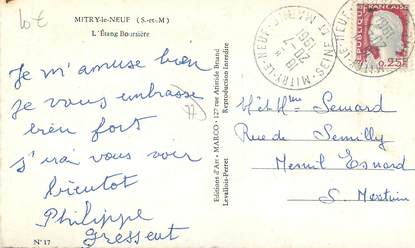 MITRY-le-NEUF (S.-et-M.)
L'Étang Boursière
Je m'amuse bien
je vous embrasse
bien fort
j'irai vous voir
bientot
Philippe
Gressent
N° 17
Editions d'Art - MARCO - 127 rue Aristide Briand
Levallois-Perret
Reproduction Interdite
MITRY-LE-NEUF
SEINE ET
1961
0,25F
Semard
Rue de Semilly
Mesnil Esnard
S. Maritime